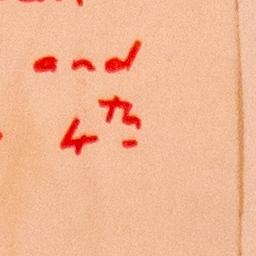 and
4th